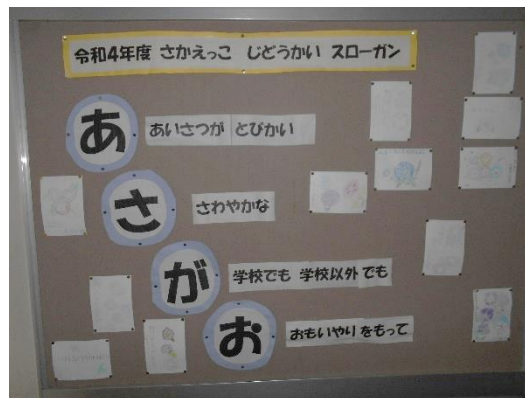 令和4年度 さかえっこ じどうかい スローガン
あ あいさつが とびかい
さ さわやかな
が 学校でも 学校以外でも
お おもいやりをもって